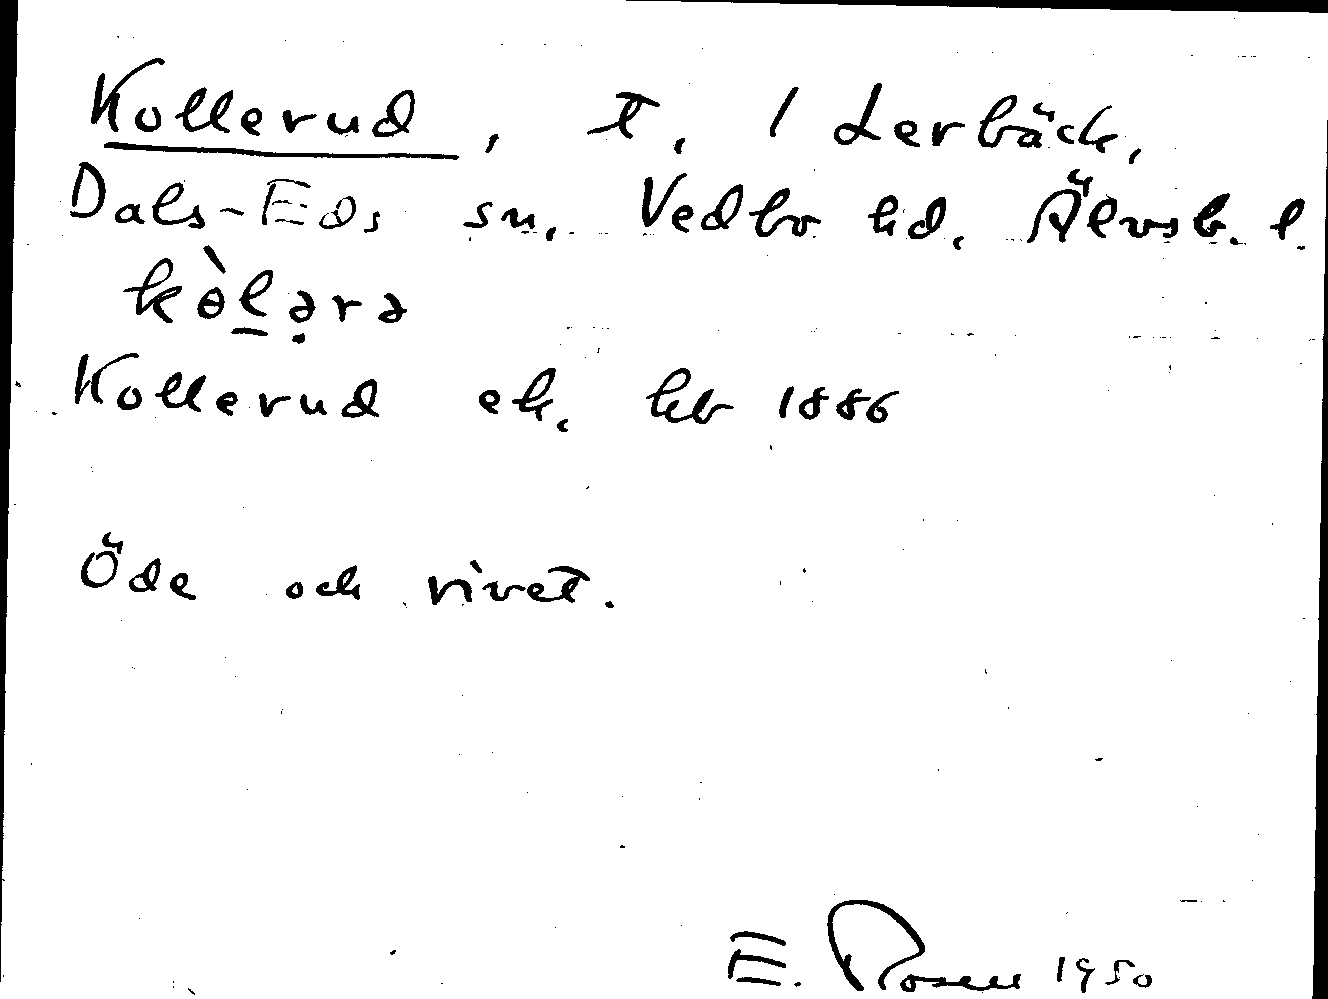 Kollerud, t. / Lerbäck,
Dals-Eds sn. Vedbo hd. Älvsb. l.
kòl̠ə̣rə
Kollerud ek. hb 1886
Öde och rivet.
E. Rosen 1950